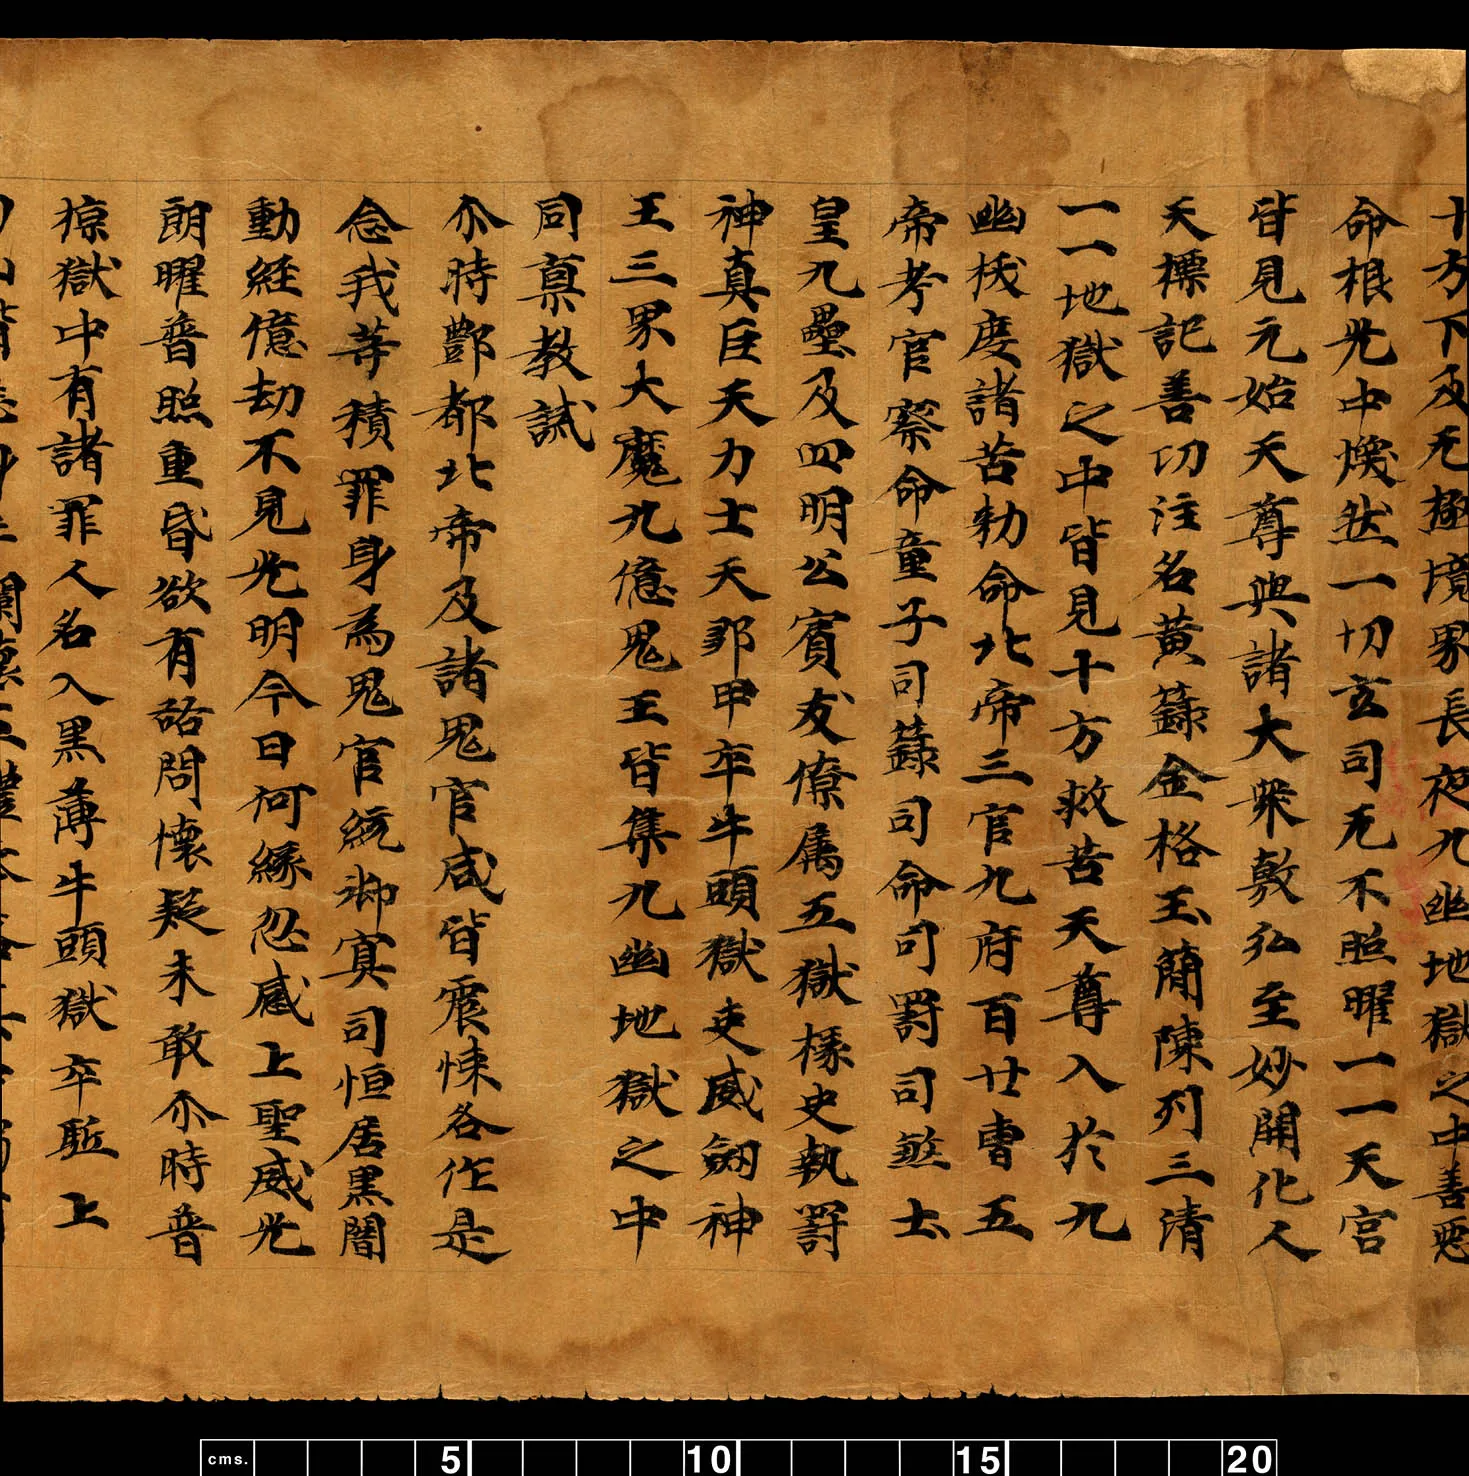 十方下及无極境界長夜九幽地獄之中善惡
命根光中煥然一切玄司无不照曜一一天宮
皆見元始天尊與諸大衆敷弘至妙開化人
天標記善功注名黃籙金格玉簡陳列三清
一一地獄之中皆見十方救苦天尊入於九
幽拔度諸苦勑命北帝三官九府百廿曹五
帝考官察命童子司籙司命司罰司煞士
皇九壘及四明公賓友僚属五獄掾史執罰
神真巨天力士天郍甲卒牛頭獄吏威劔神
王三界大魔九億鬼王皆集九幽地獄之中
同稟教誡
尒時酆都北帝及諸鬼官咸皆震悚各作是
念我等積罪身為鬼官統御冥司恒居黑闇
動経億劫不見光明今日何緣忽感上聖威光
朗曜普照重昏欲有諮問懷疑未敢尒時普
掠獄中有諸罪人名入黑薄牛頭獄卒駈上